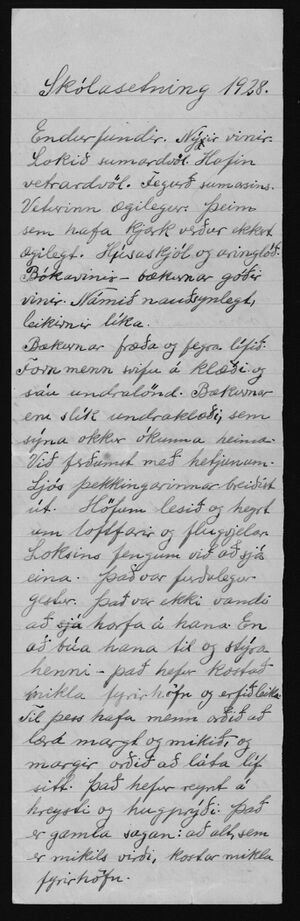 Skólasetning 1928.
Endurfundir. Nýjir vinir.
Lokið sumardvöl. Hafin
vetrardvöl. Fegurð sumarsins.
Veturinn ægilegur. Þeim
sem hafa kjark verður ekkert
ægilegt. Húsaskjól og aringlóð.
Bókavinir - bækurnar góðir
vinir. Námið nauðsynlegt,
leikirnir líka.
Bækurnar fræða og fegra lífið.
Fornmenn svifu á klæði og
sáu undralönd. Bækurnar
eru slík undraklæði, sem
sýna okkur ókunna heima.
Við ferðumst með hetjunum.
Ljós þekkingarinnar breiðist
út. Höfum lesið og heyrt
um loftfarir og flugvjelar.
Loksins fengum við að sjá
eina. Það var furðulegur
gestur. Það var ekki vandi
að sjá horfa á hana. En
að búa hana til og stýra
henni - það hefur kostað
mikla fyrirhöfn og erfiðleika.
Til þess hafa menn orðið að
læra margt og mikið, og
margir orðið að láta líf
sitt. Það hefur reynt á
hreysti og hugprýði. Það
er gamla sagan: að alt, sem
er mikils virði, kostar mikla
fyrirhöfn.